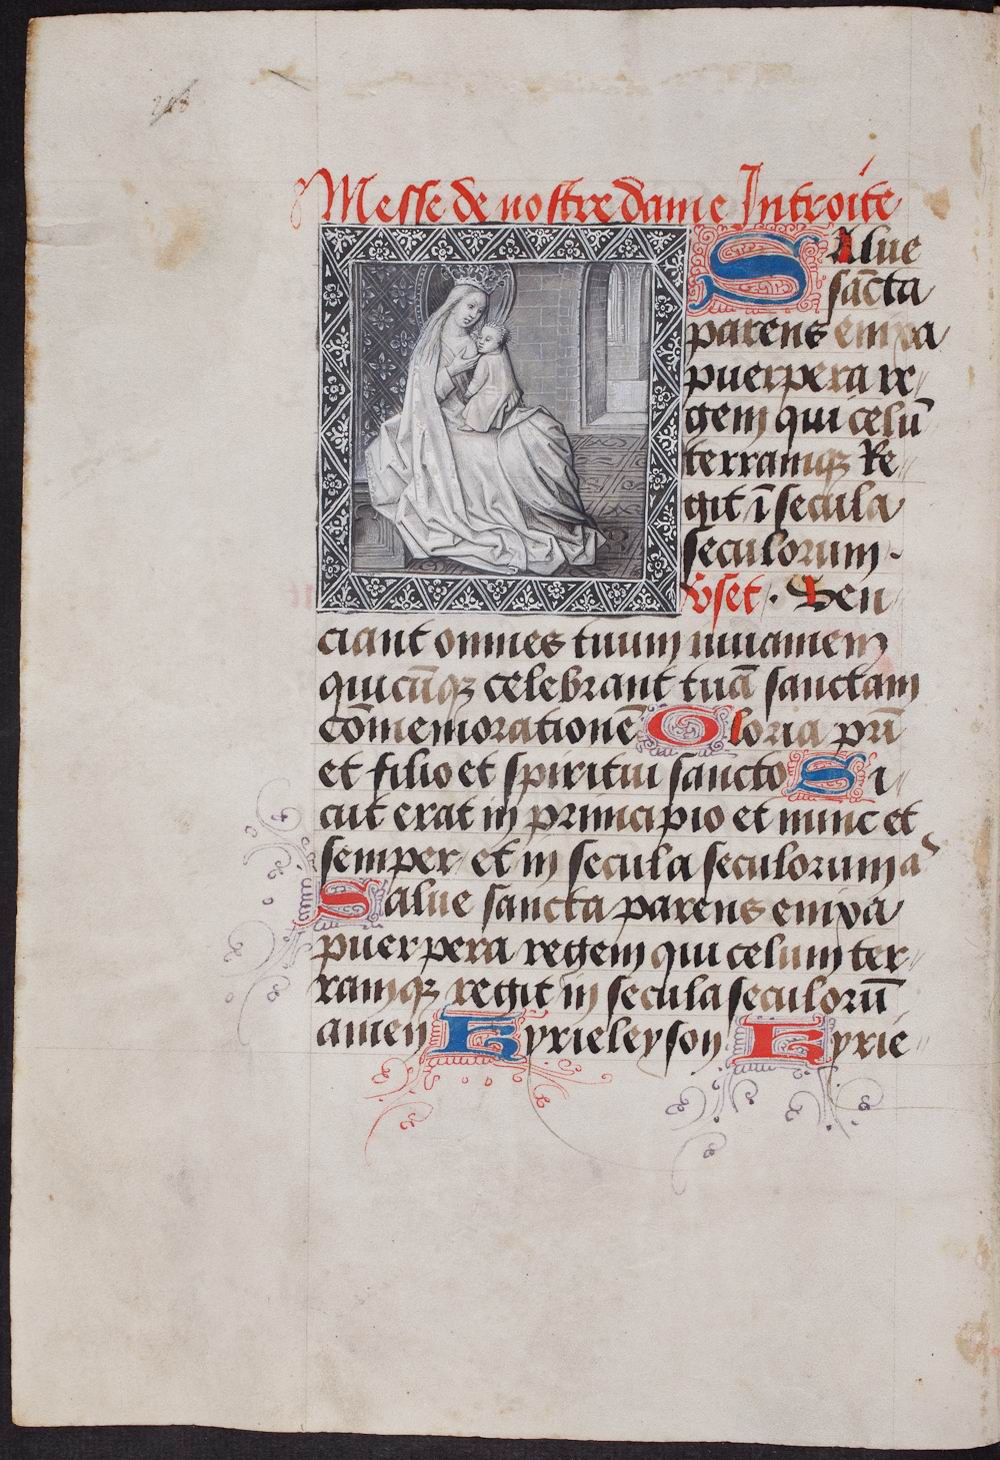 Messe de nostre dame Introite
Salue
sācta
parens enixa
puerpera re
gem qui celū
terramqꝫ Re
git ī secula
seculorum.
℣set. Sen
ciant omnes tuum iuuamem
quicūqꝫ celebrant tuā sanctam
cōmemorationē Gloria pr̄i
et filio et spiritui sancto Si
cut erat in principio et nunc et
semper et in secula seculorum a
Salue sancta parens enixa
puerpera regem qui celum ter
ramqꝫ regit in secula seculorū
amen Kyrieleyson Kyrie